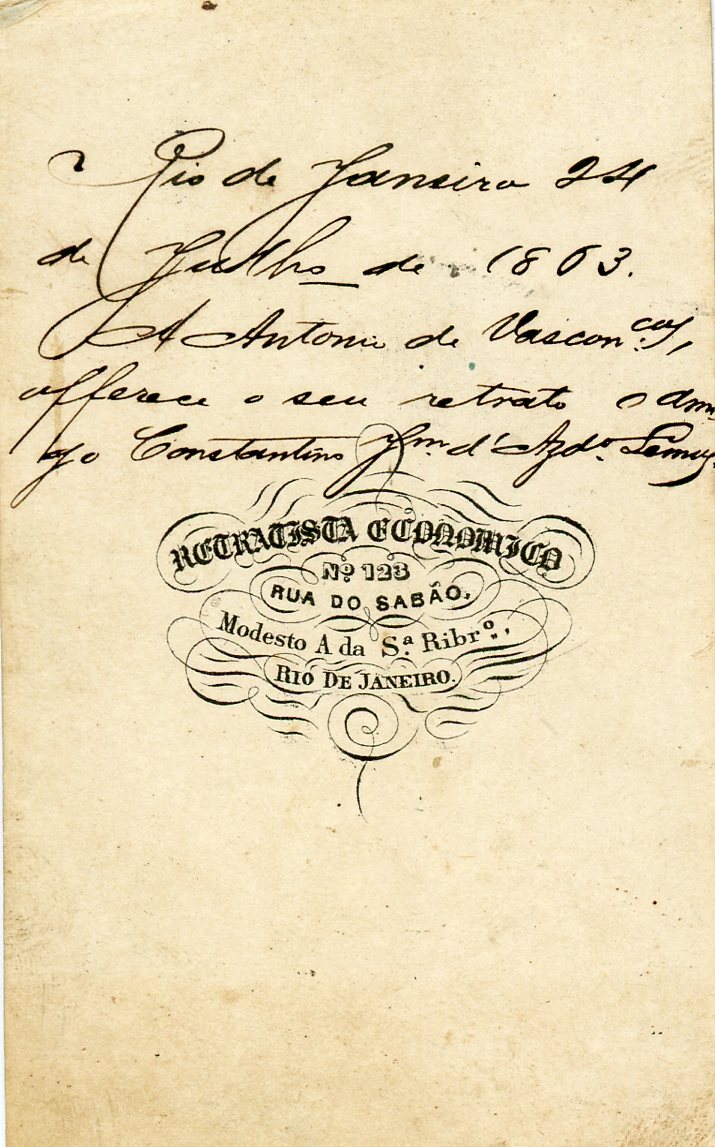 Rio de Janeiro 24
de Julho de 1863.
A Antonio de Vascon.cos,
offerece o seu retrato o Am.
go Constantino Jm. d'Azdo. Lemos
RETRATISTA ECONOMICO
Nº 123
RUA DO SABÃO,
Modesto A da S.a Ribr.o,
RIO DE JANEIRO.